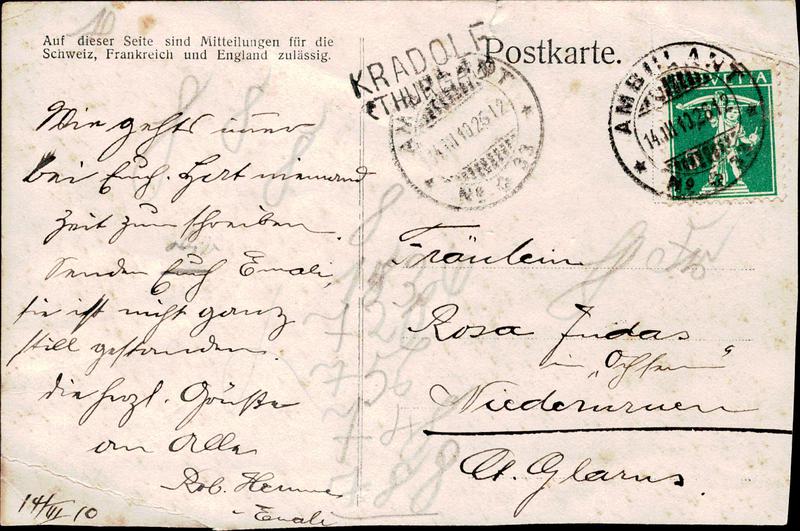 Auf dieser Seite sind Mitteilungen für die
Schweiz, Frankreich und England zulässig.
Postkarte.
KRADOLF
(THURGAU)
AMBULANT
14.III.10.26.12
No 33
AMBULANT
14.III.10.26.12
No
HELVETIA
Wie gehts immer
bei Euch. Hat niemand
Zeit zum schreiben.
Senden Euch Emali,
sie ist nicht ganz
still gestanden.
die herzl. Grüße
an Alle
Rob.
Emali
14/III 10
Fräulein
Rosa Judas
im „Ochsen“
Niederurnen
Ct. Glarus.